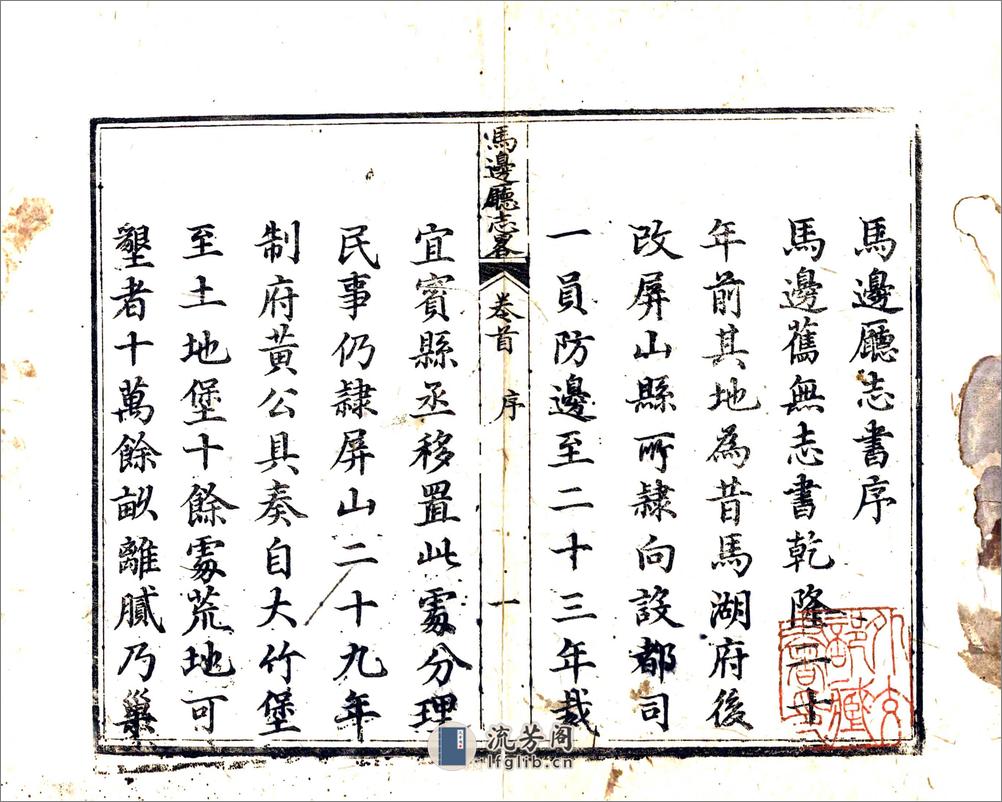 馬邊廳志書序
馬邊舊無志書乾隆二十
年前其地為昔馬湖府後
改屏山縣所隷向設都司
一員防邊至二十三年裁
馬邊廳志畧
卷首
序
一
宜賓縣丞移置此處分理
民事仍隷屏山二十九年
制府黃公具奏自大竹堡
至土地堡十餘處荒地可
墾者十萬餘畝離膩乃巢
流芳阁
lfglib.cn